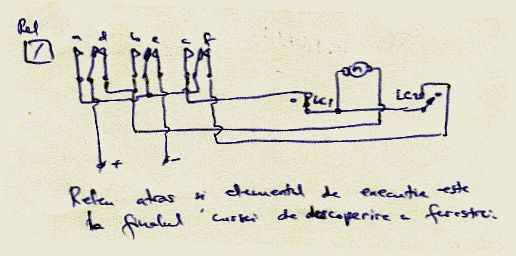 Rel
a d b e c f
M
LC1 LC2
+ -
Releu atras si elementul de executie este
la finalul cursei de descoperire a ferestrei.